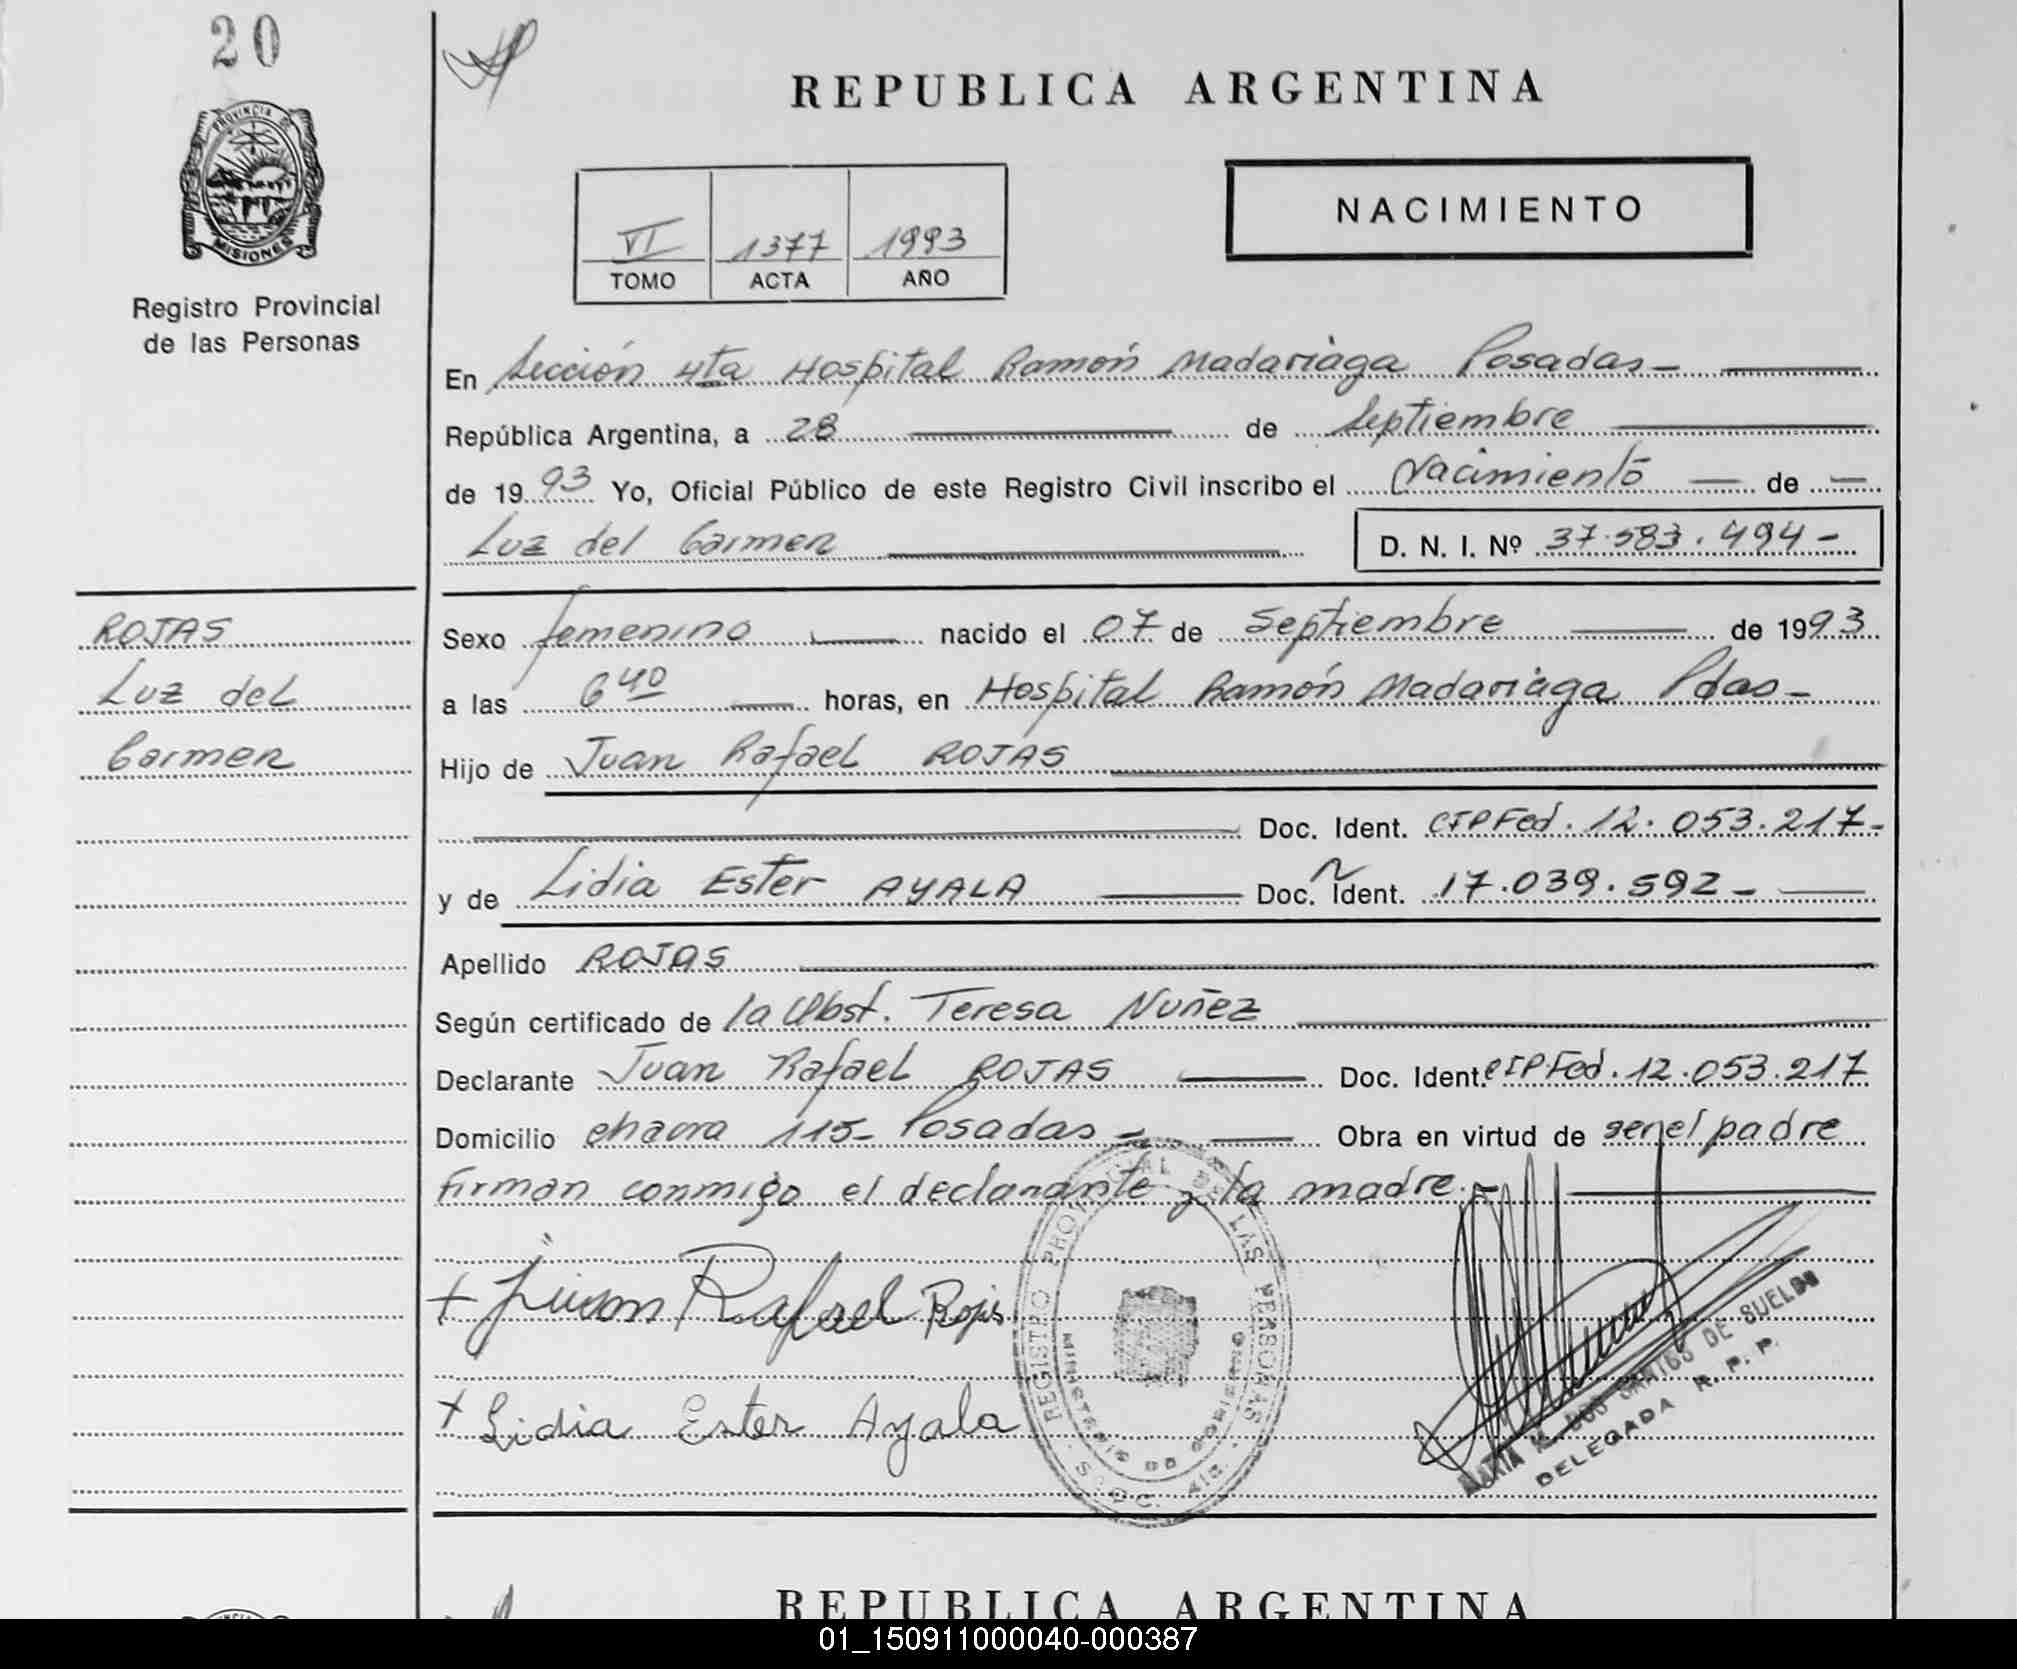 20
PROVINCIA DE
MISIONES
Registro Provincial
de las Personas
REPUBLICA ARGENTINA
NACIMIENTO
VI 1377 1993
TOMO ACTA AÑO
En Sección 4ta Hospital Ramón Madariaga Posadas-
República Argentina, a 28 de Septiembre
de 1993 Yo, Oficial Público de este Registro Civil inscribo el Nacimiento de
Luz del Carmen D. N. I. Nº 37.583.494-
ROJAS
Luz del
Carmen
Sexo femenino nacido el 07 de Septiembre de 1993
a las 6 40 horas, en Hospital Ramón Madariaga Pdas-
Hijo de Juan Rafael ROJAS
Doc. Ident. CIPFed. 12.053.217-
y de Lidia Ester AYALA Doc. Ident. 17.039.592-
Apellido ROJAS
Según certificado de la Obst. Teresa Nuñez
Declarante Juan Rafael ROJAS Doc. Ident. CIPFed. 12.053.217
Domicilio chacra 115- Posadas- Obra en virtud de ser el padre
Firman conmigo el declarante y la madre.-
+ Juan Rafael Rojas
+ Lidia Ester Ayala
REGISTRO PROVINCIAL DE LAS PERSONAS
MINISTERIO DE GOBIERNO
MARIA M. DOS SANTOS DE SUELDO
DELEGADA R. P. P.
REPUBLICA ARGENTINA
01_150911000040-000387